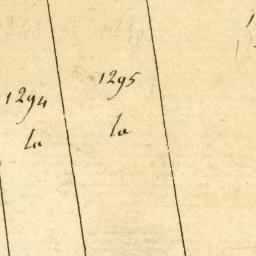 1294
la
1295
la